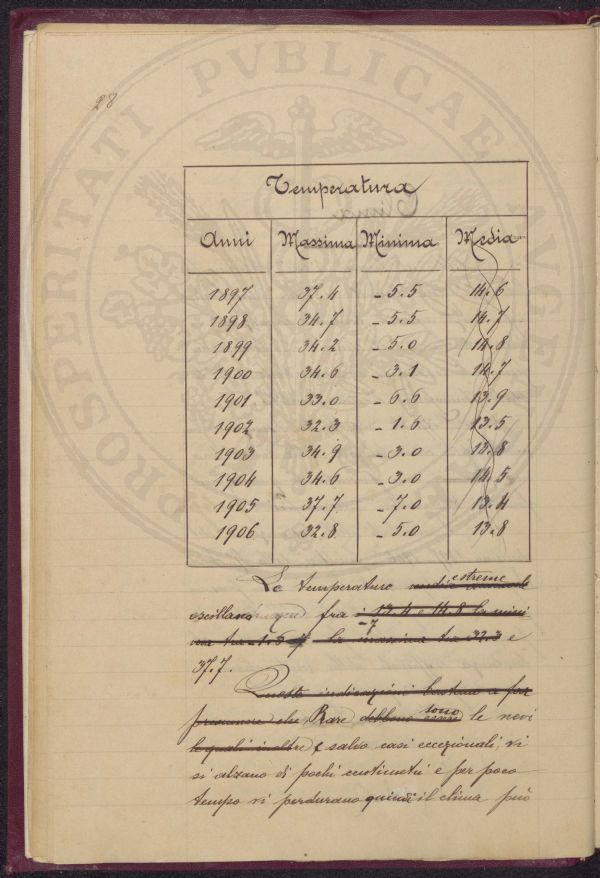 28
PROSPERITATI PVBLICAE AVGENDAE
Temperatura
Anni Massima Minima Media
1897 37.4 - 5.5 14.6
1898 34.7 - 5.5 14.7
1899 34.2 - 5.0 14.8
1900 34.6 - 3.1 14.7
1901 33.0 - 6.6 13.9
1902 32.3 - 1.6 13.5
1903 34.9 - 3.0 13.8
1904 34.6 - 3.0 14.5
1905 37.7 - 7.0 13.4
1906 32.8 - 5.0 13.8
estreme
Le temperature medie
oscillano fra i 13.4 e 14.8 la mini
- 7
ma tra - 1.6 la massima tra 32.3 e
37.7.
Queste indicazioni bastano a far
sono
presumere che Rare debbono essere le nevi
le quali inoltre e salvo casi eccezionali, vi
si alzano di pochi centimetri e per poco
tempo vi perdurano quindi il clima può